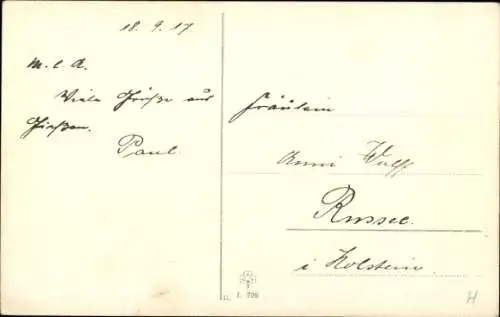 18.9.17
M. l. A.
Viele Grüße aus
Gießen.
Paul.
Fräulein
Anni Wulff
Russee.
i Holstein.
L. 706
H